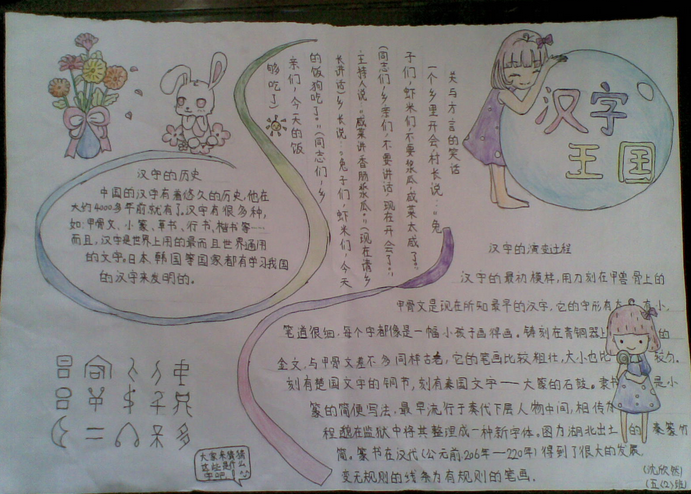 汉字
王国
关与方言的笑话
一个乡里开会,村长说:“兔
子们,虾米们,不要浆瓜,咸菜太咸了。”
(同志们,乡亲们,不要讲话,现在开会了。)
主持人说:“咸菜讲香肠酱瓜。”(现在请乡
长讲话)乡长说:“兔子们,虾米们,今天
的饭狗吃了。”(同志们,乡
亲们,今天的饭
够吃了)
汉字的历史
中国的汉字有着悠久的历史,他在
大约4000多年前就有了,汉字有很多种,
如:甲骨文、小篆、草书、行书、楷书等…
而且,汉字是世界上用的最而且世界通用
的文字。日本、韩国等国家都有学习我国
的汉字来发明的。
汉字的演变过程
汉字的最初模样,用刀刻在甲兽骨上的
甲骨文是现在所知最早的汉字,它的字形有 小,
笔道很细,每个字都像是一幅小孩子画得画。铸刻在青铜器上 的
金文,与甲骨文差不多同样古老,它的笔画比较粗壮,大小也比 较匀。
刻有楚国文字的铜节,刻有秦国文字——大篆的石鼓。隶书 是小
篆的简便写法,最早流行于秦代下层人物中间,相传
程邈在监狱中将其整理成一种新字体。图为湖北出土的 秦篆竹
简。篆书在汉代(公元前206年—220年)得到了很大的发展.
变无规则的线条为有规则的笔画。
大家来猜猜
这些是什么
字吧
沈欣然
(五(2)班)